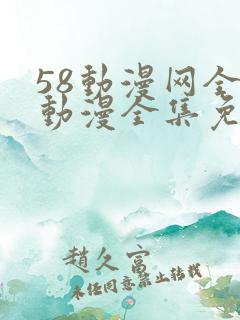 58動漫网全
動漫全集免
趙久富
未经同意禁止转载